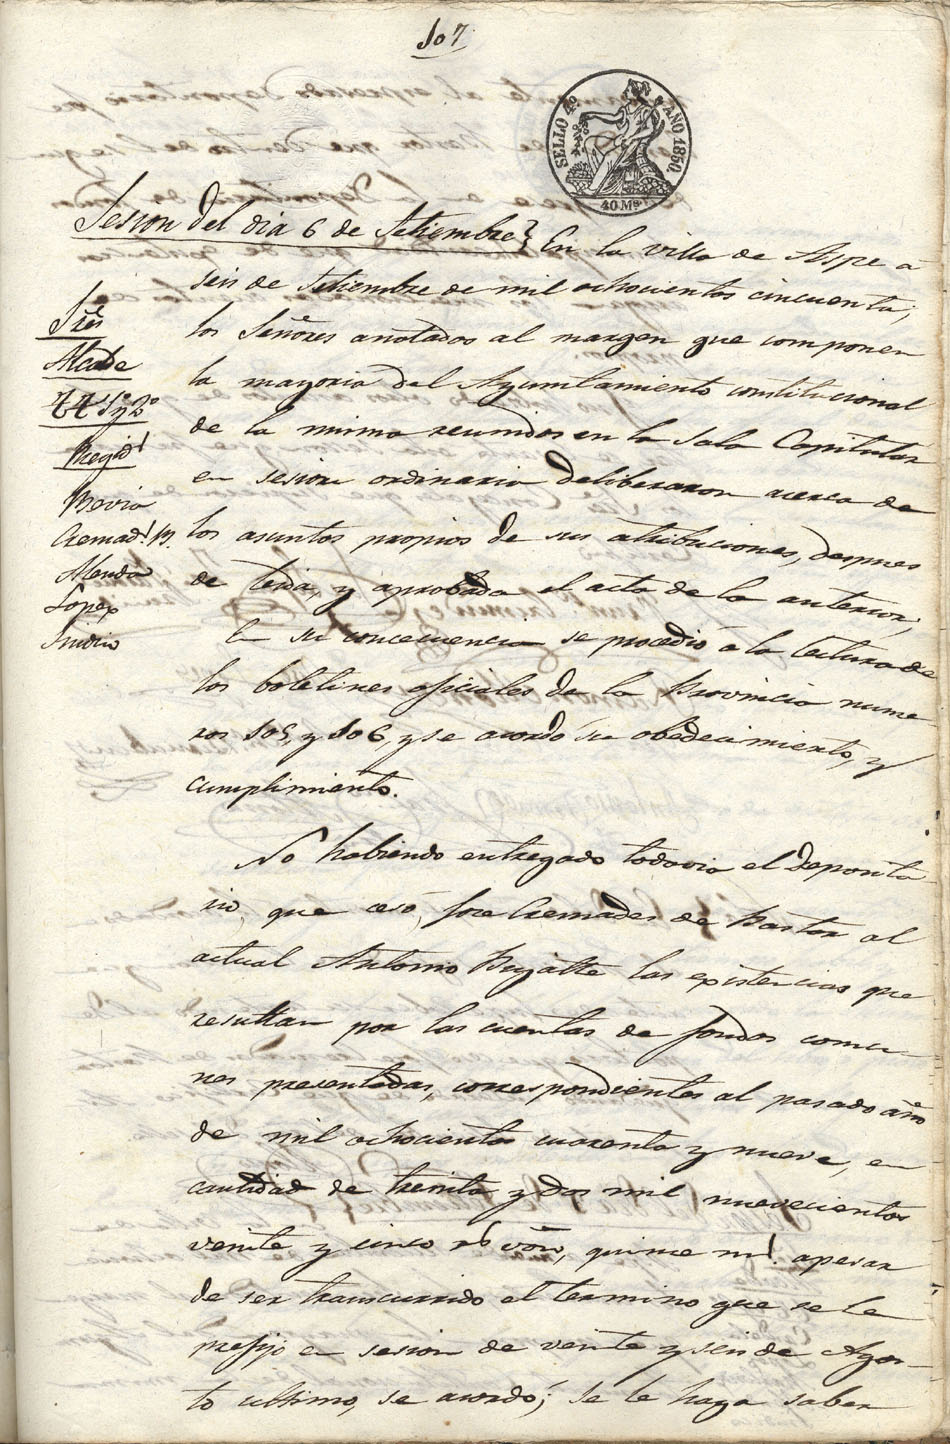 107
SELLO 4º AÑO 1850
40 Ms
Sesion del dia 6 de Setiembre} En la villa de Aspe á
seis de Setiembre de mil ochocientos cincuenta;
los Señores anotados al margen que componen
la mayoria del Ayuntamiento constitucional
de la misma reunidos en la Sala Capitular
en sesion ordinaria deliberaron acerca de
los asuntos propios de sus atribuciones, despues
de leida, y aprobada el acta de la anterior,
En su concecuencia se procedió á la lectura de
los boletines oficiales de la Provincia nume
ros 105, y 106, y se acordó su obedecimiento, y
cumplimiento.
Sres
Alcalde
TT 1º y 2º
Regid.s
Bovio
Cremad.s B.
Alenda
Lopez
Sindico
No habiendo entregado todavia el Deposita
rio, que cesó, Jose Cremades de Pastor al
actual Antonio Pujalte las existencias que
resultan por las cuentas de fondos comu
nes presentadas, correspondientes al pasado año
de mil ochocientos cuarenta y nueve, en
cantidad de treinta y dos mil nuevecientos
veinte y cinco rs von, quince ms. apesar
de ser transcurrido el termino que se le
prefijo en sesion de veinte y seis de Agos-
to ultimo, se acordó; se le haga saber